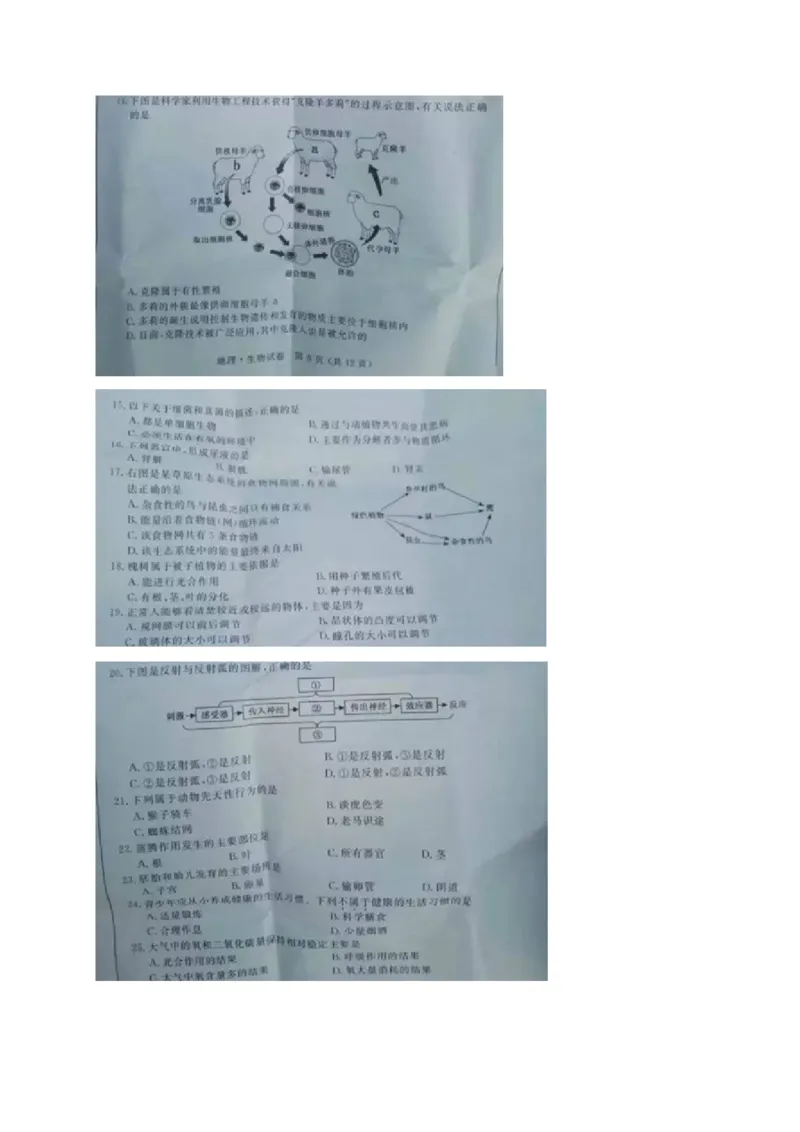 下图是科学家利用生物工程技术获得“克隆羊多莉”的过程示意图,有关说法正确
的是
供核母羊
b
供卵细胞母羊
a
克隆羊
产出
分离乳腺
细胞
去核卵细胞
细胞核
取出细胞核
融合细胞
胚胎
c
代孕母羊
A.克隆属于有性繁殖
B.多莉的外貌最像供卵细胞母羊a
C.多莉的诞生说明控制生物遗传和发育的物质主要位于细胞核内
D.目前,克隆技术被广泛应用,其中克隆人也是被允许的
地理·生物试卷 第8页(共12页)
15.以下关于细菌和真菌的描述,正确的是
A.都是单细胞生物
B.通过与动植物共生而使其患病
C.必须生活在有氧的环境中
D.主要作为分解者参与物质循环
16.下列器官中,形成尿液的是
A.肾脏
B.膀胱
C.输尿管
D.肾盂
17.右图是某草原生态系统的食物网简图,有关说
法正确的是
A.杂食性的鸟与昆虫之间只有捕食关系
B.能量沿着食物链(网)循环流动
C.该食物网共有5条食物链
D.该生态系统中的能量最终来自太阳
绿色植物
食草籽的鸟
鼠
鹰
昆虫
杂食性的鸟
18.槐树属于被子植物的主要依据是
A.能进行光合作用
B.用种子繁殖后代
C.有根、茎、叶的分化
D.种子外有果皮包被
19.正常人能够看清楚较近或较远的物体,主要是因为
A.视网膜可以前后调节
B.晶状体的凸度可以调节
C.玻璃体的大小可以调节
D.瞳孔的大小可以调节
20.下图是反射与反射弧的图解,正确的是
①
刺激 感受器 传入神经 ② 传出神经 效应器 反应
③
A.①是反射弧,②是反射
B.①是反射弧,③是反射
C.②是反射弧,③是反射
D.①是反射,②是反射弧
21.下列属于动物先天性行为的是
A.猴子骑车
B.谈虎色变
C.蜘蛛结网
D.老马识途
22.蒸腾作用发生的主要部位是
A.根
B.叶
C.所有器官
D.茎
23.胚胎和胎儿发育的主要场所是
A.子宫
B.卵巢
C.输卵管
D.阴道
24.青少年应从小养成健康的生活习惯。下列不属于健康的生活习惯的是
A.适量锻炼
B.科学膳食
C.合理作息
D.少量烟酒
25.大气中的氧和二氧化碳量保持相对稳定主要是
A.光合作用的结果
B.呼吸作用的结果
C.大气中氧含量多的结果
D.氧大量消耗的结果